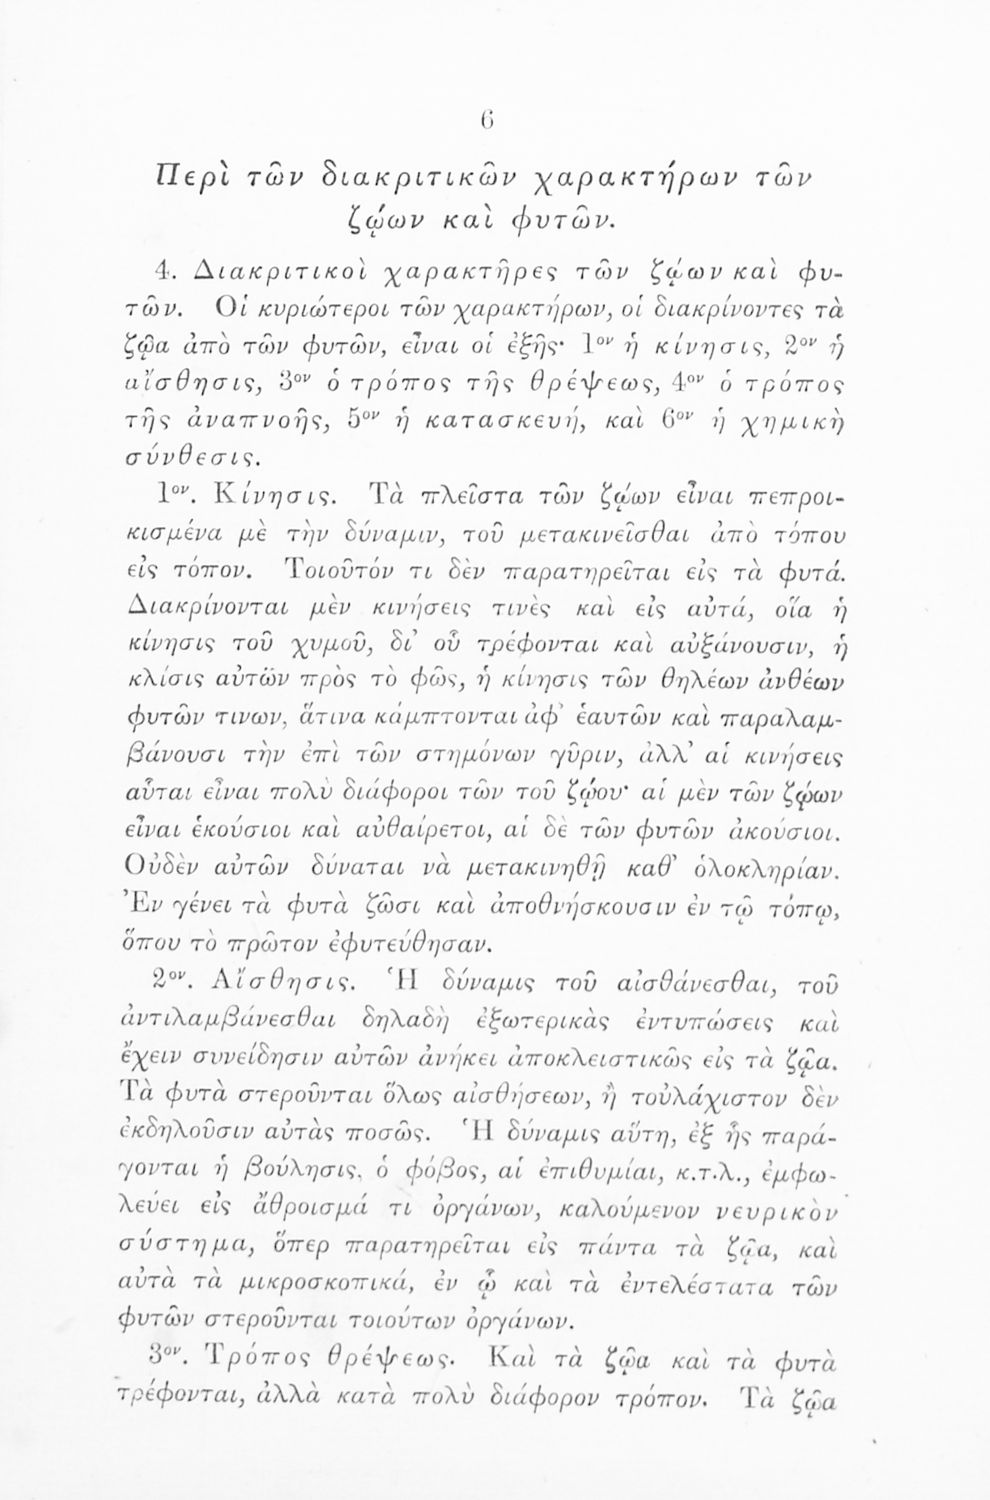 6
Περὶ τῶν διακριτικῶν χαρακτήρων τῶν
ζῴων καὶ φυτῶν.
4. Διακριτικοὶ χαρακτῆρες τῶν ζῴων καὶ φυ-
τῶν. Οἱ κυριώτεροι τῶν χαρακτήρων, οἱ διακρίνοντες τὰ
ζῷα ἀπὸ τῶν φυτῶν, εἶναι οἱ ἑξῆς· 1ον ἡ κίνησις, 2ον ἡ
αἴσθησις, 3ον ὁ τρόπος τῆς θρέψεως, 4ον ὁ τρόπος
τῆς ἀναπνοῆς, 5ον ἡ κατασκευή, καὶ 6ον ἡ χημικὴ
σύνθεσις.
1ον. Κίνησις. Τὰ πλεῖστα τῶν ζῴων εἶναι πεπροι-
κισμένα μὲ τὴν δύναμιν, τοῦ μετακινεῖσθαι ἀπὸ τόπου
εἰς τόπον. Τοιοῦτόν τι δὲν παρατηρεῖται εἰς τὰ φυτά.
Διακρίνονται μὲν κινήσεις τινὲς καὶ εἰς αὐτά, οἵα ἡ
κίνησις τοῦ χυμοῦ, δι’ οὗ τρέφονται καὶ αὐξάνουσιν, ἡ
κλίσις αὐτῶν πρὸς τὸ φῶς, ἡ κίνησις τῶν θηλέων ἀνθέων
φυτῶν τινων, ἅτινα κάμπτονται ἀφ’ ἑαυτῶν καὶ παραλαμ-
βάνουσι τὴν ἐπὶ τῶν στημόνων γῦριν, ἀλλ’ αἱ κινήσεις
αὗται εἶναι πολὺ διάφοροι τῶν τοῦ ζῴου· αἱ μὲν τῶν ζῴων
εἶναι ἑκούσιοι καὶ αὐθαίρετοι, αἱ δὲ τῶν φυτῶν ἀκούσιοι.
Οὐδὲν αὐτῶν δύναται νὰ μετακινηθῇ καθ’ ὁλοκληρίαν.
Ἐν γένει τὰ φυτὰ ζῶσι καὶ ἀποθνήσκουσιν ἐν τῷ τόπῳ,
ὅπου τὸ πρῶτον ἐφυτεύθησαν.
2ον. Αἴσθησις. Ἡ δύναμις τοῦ αἰσθάνεσθαι, τοῦ
ἀντιλαμβάνεσθαι δηλαδὴ ἐξωτερικὰς ἐντυπώσεις καὶ
ἔχειν συνείδησιν αὐτῶν ἀνήκει ἀποκλειστικῶς εἰς τὰ ζῷα.
Τὰ φυτὰ στεροῦνται ὅλως αἰσθήσεων, ἢ τοὐλάχιστον δὲν
ἐκδηλοῦσιν αὐτὰς ποσῶς. Ἡ δύναμις αὕτη, ἐξ ἧς παρά-
γονται ἡ βούλησις, ὁ φόβος, αἱ ἐπιθυμίαι, κ.τ.λ., ἐμφω-
λεύει εἰς ἄθροισμά τι ὀργάνων, καλούμενον νευρικὸν
σύστημα, ὅπερ παρατηρεῖται εἰς πάντα τὰ ζῷα, καὶ
αὐτὰ τὰ μικροσκοπικά, ἐν ᾧ καὶ τὰ ἐντελέστατα τῶν
φυτῶν στεροῦνται τοιούτων ὀργάνων.
3ον. Τρόπος θρέψεως. Καὶ τὰ ζῷα καὶ τὰ φυτὰ
τρέφονται, ἀλλὰ κατὰ πολὺ διάφορον τρόπον. Τὰ ζῷα